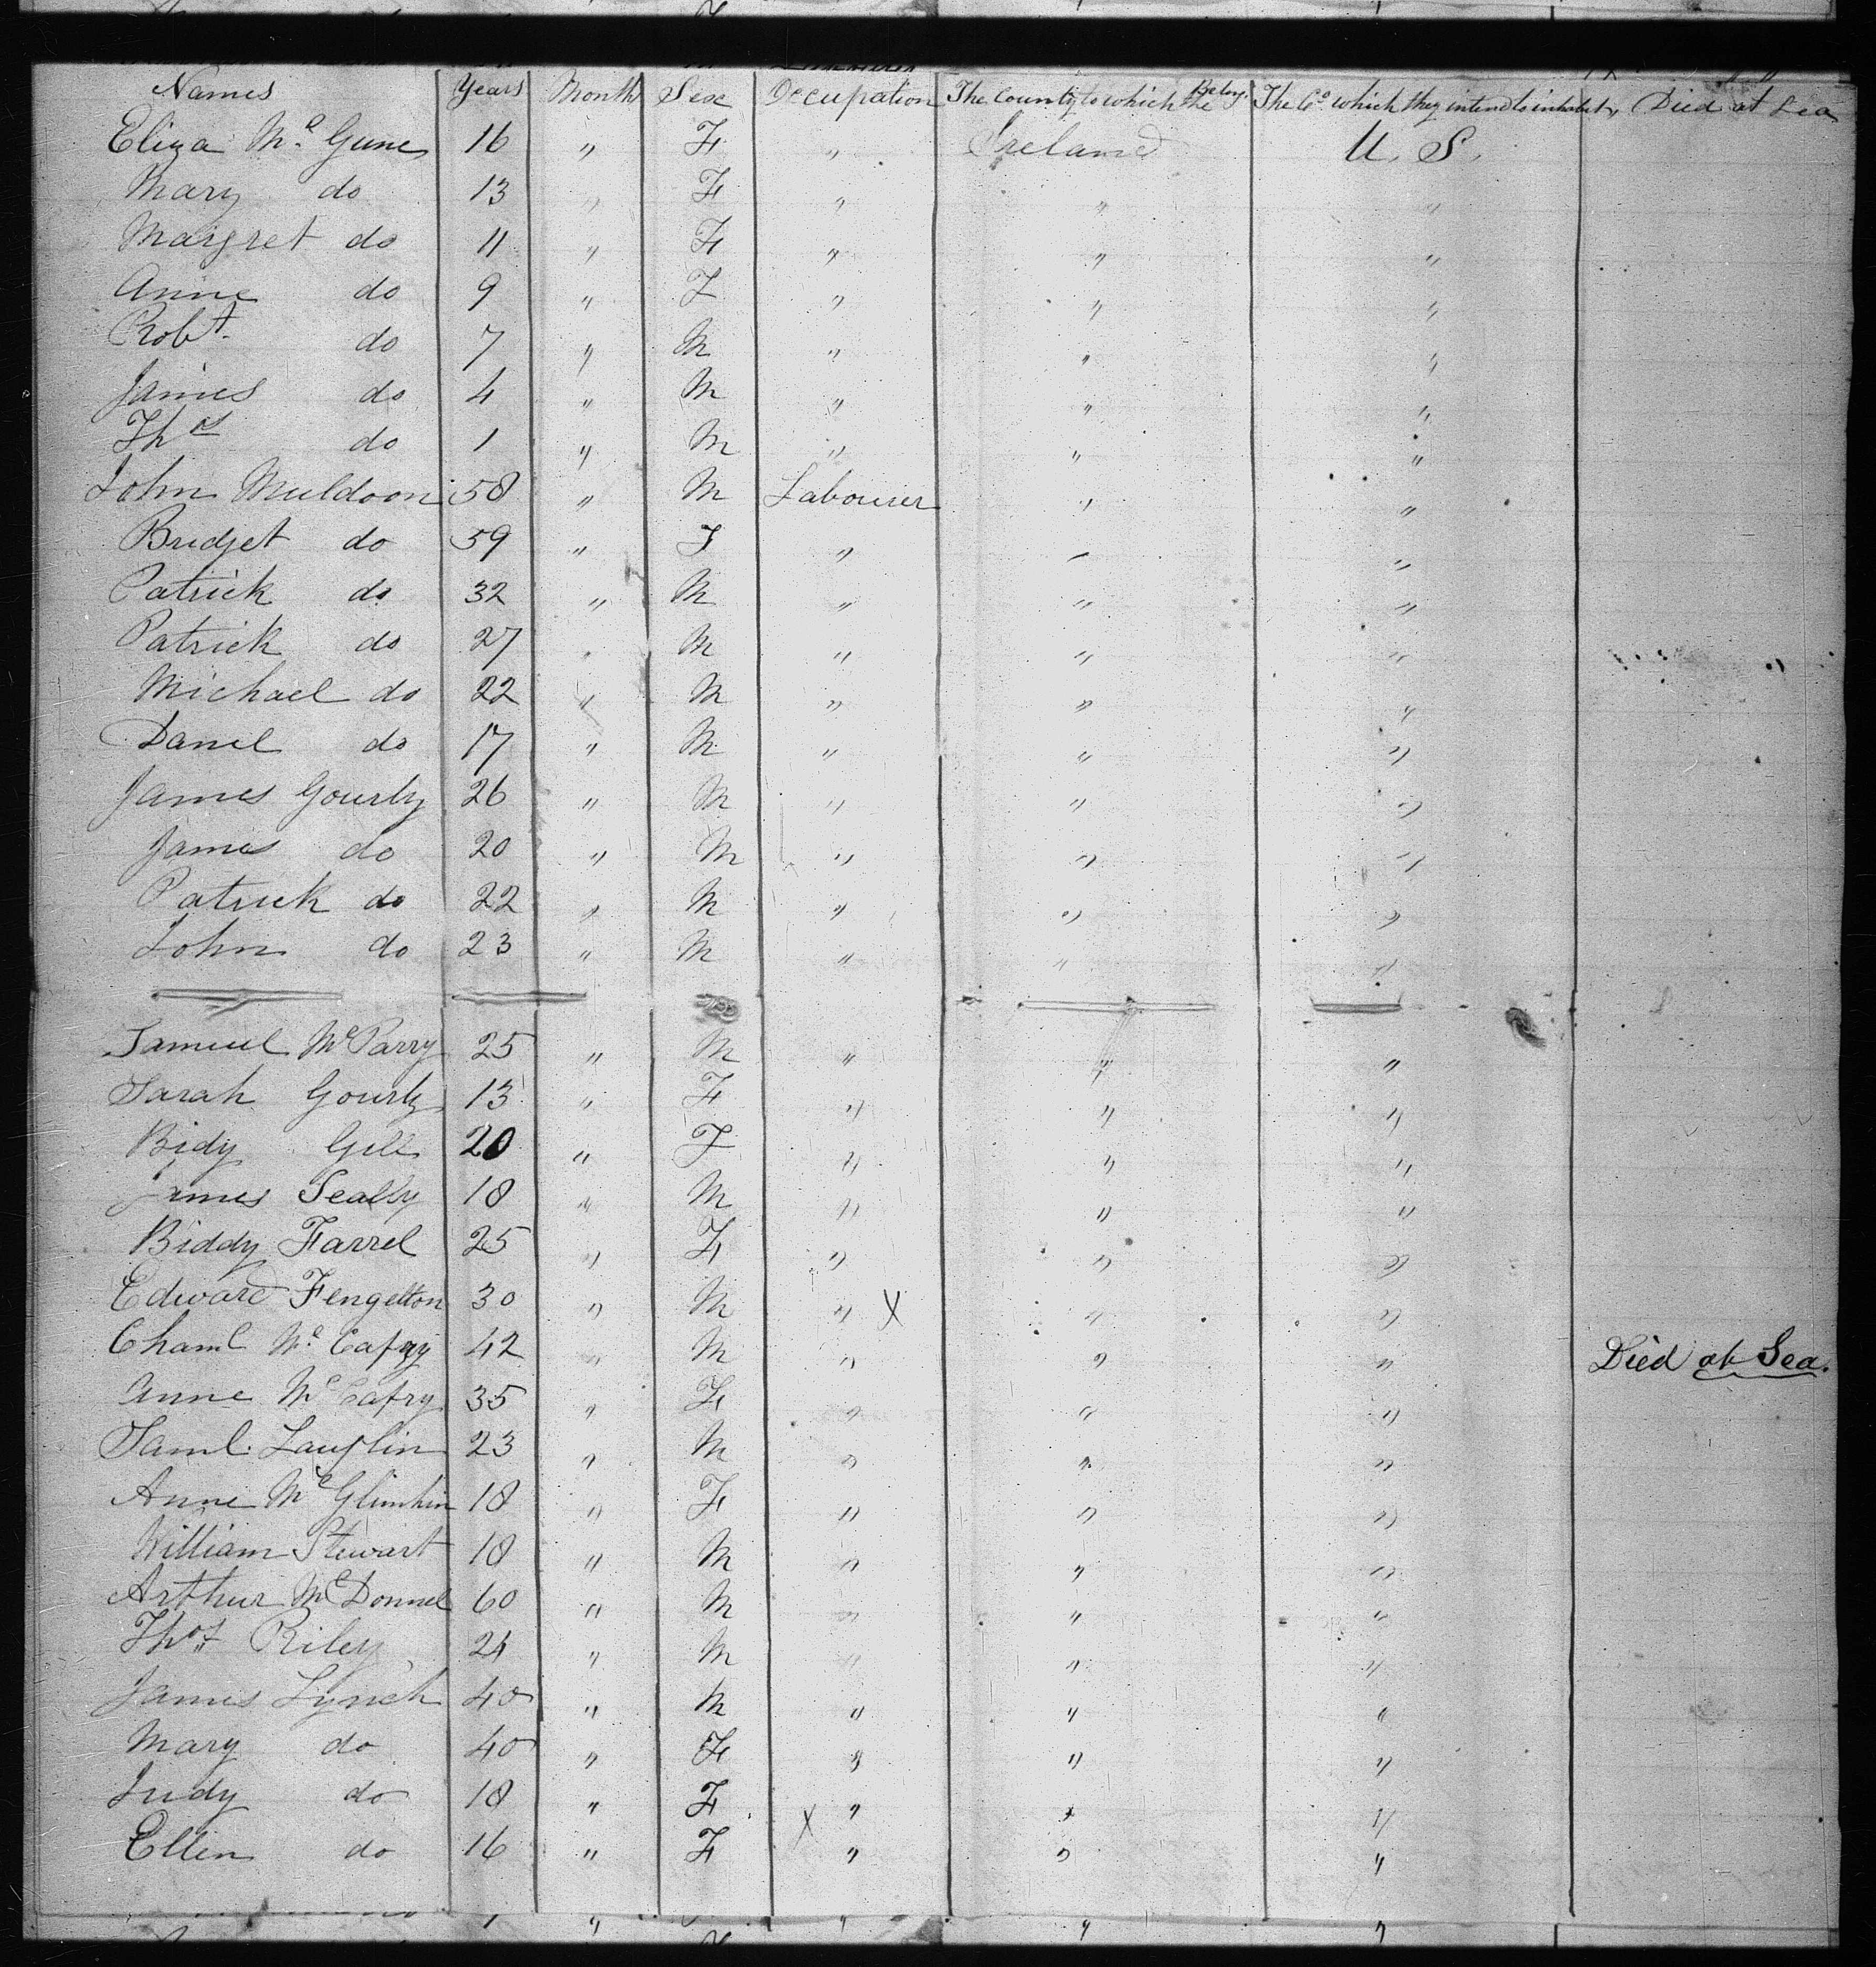 Names Years Month Sex Occupation The County to which the Belong The Co which they intend to inhabit Died at Sea
Eliza Mc Gune 16 " F " Ireland U. S.
Mary do 13 " F " " "
Margret do 11 " F " " "
Anne do 9 " F " " "
Robt. do 7 " M " " "
James do 4 " M " " "
Thos do 1 " M " " "
John Muldoon 58 " M Labourer " "
Bridget do 59 " F " " "
Patrick do 32 " M " " "
Patrick do 27 " M " " "
Michael do 22 " M " " "
Danel do 17 " M " " "
James Gourly 26 " M " " "
James do 20 " M " " "
Patrick do 22 " M " " "
John do 23 " M " " "
Samuel Mc Parry 25 " M " " "
Sarah Gourly 13 " F " " "
Bidy Gill 20 " F " " "
James Scally 18 " M " " "
Biddy Farrel 25 " F " " "
Edward Fengelton 30 " M " X " "
Mc Cafry 42 " M " " " Died at Sea.
Anne Mc Cafry 35 " F " " "
Saml. Lauglin 23 " M " " "
Anne 18 " F " " "
William Stewart 18 " M " " "
Arthur Mc Donnel 60 " M " " "
Thos Riley 24 " M " " "
James Lynch 40 " M " " "
Mary do 40 " F " " "
Judy do 18 " F " " "
Ellen do 16 " F X " " "